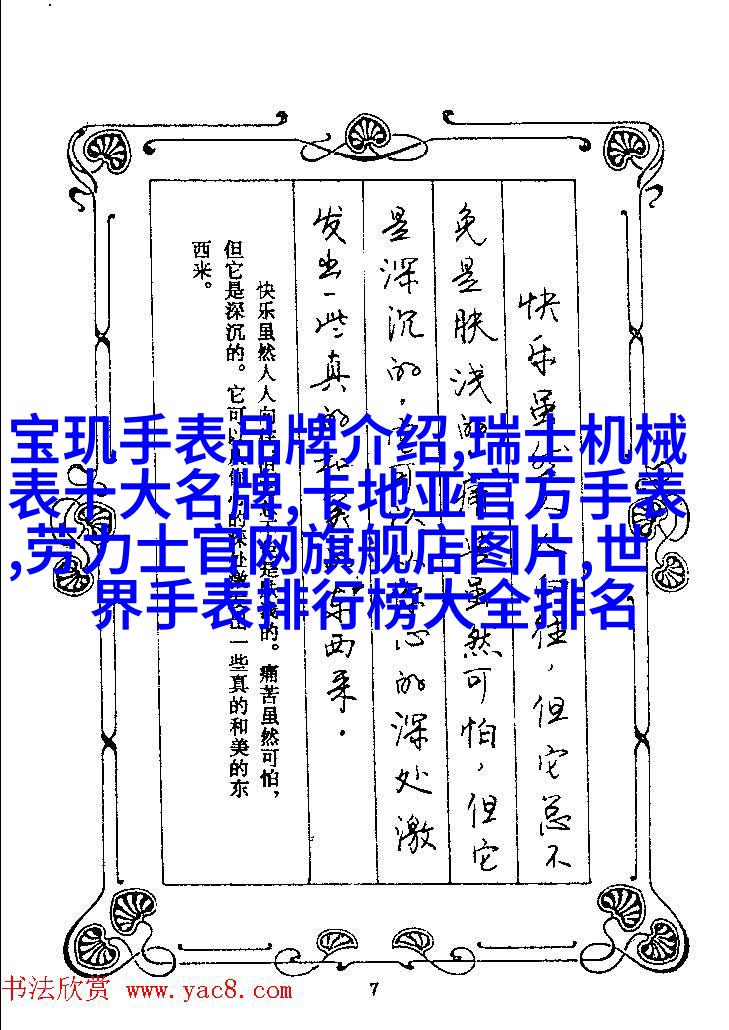 宝玑手表品牌介绍,瑞士机械
表十大名牌,卡地亚官方手表
,劳力士官网旗舰店图片,世
界手表排行榜大全排名
快乐虽往，但它总不
免是肤浅的痛虽然可怕，但它
是深沉的，心的深处激
发出一些真的东西来.
快乐虽然人人向的。痛苦虽然可怕，
但它是深沉的。它可以的一些真的和美的东
西来。
7
书法欣赏 www.yac8.com